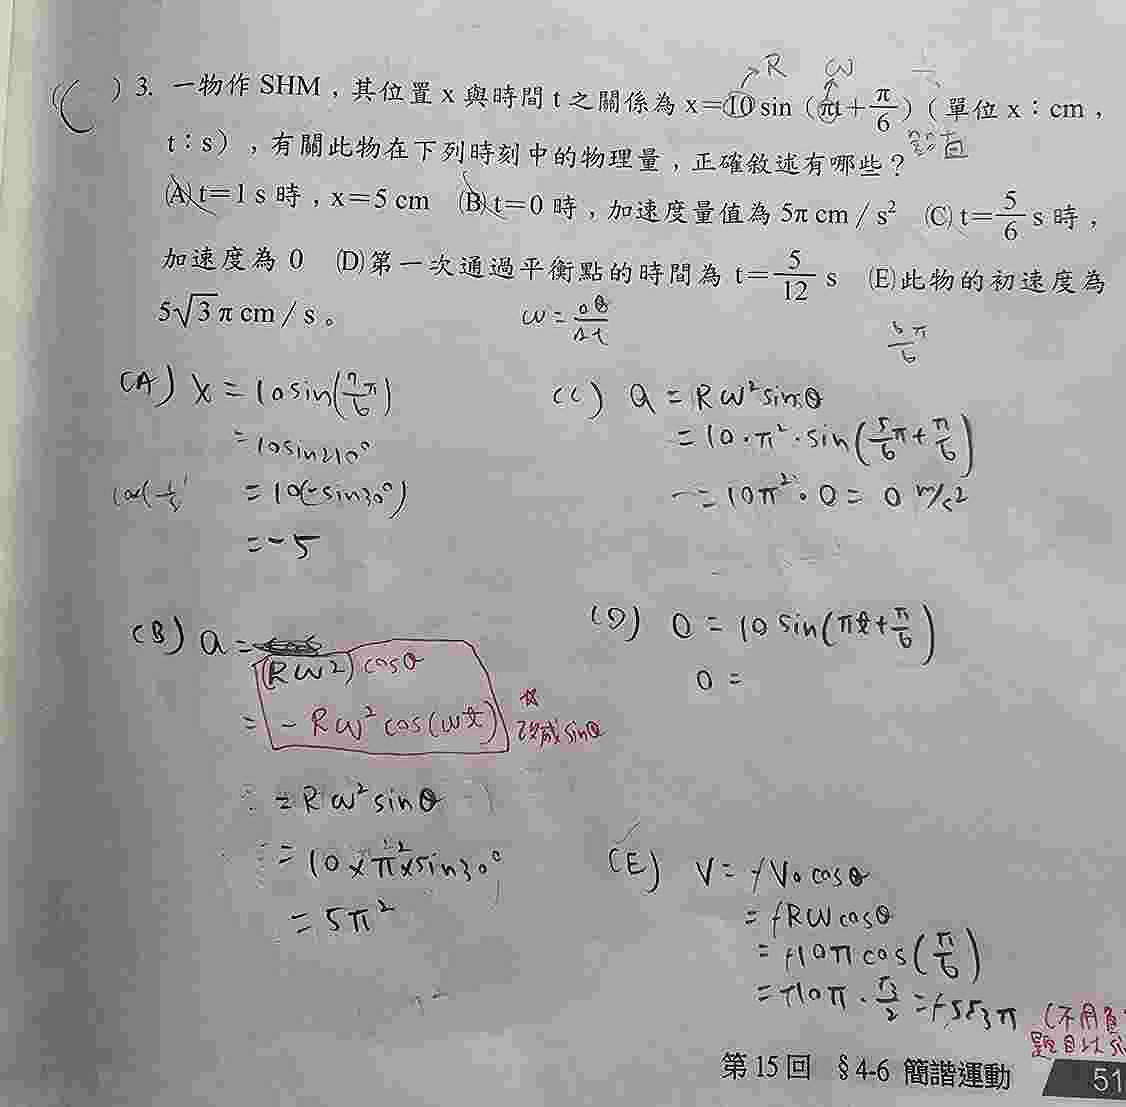 R ω
( ) 3. 一物作 SHM，其位置 x 與時間 t 之關係為 x=10 sin（πt+π/6）（單位 x：cm，
t：s），有關此物在下列時刻中的物理量，正確敘述有哪些？
(A) t=1 s 時，x=5 cm (B) t=0 時，加速度量值為 5π cm／s² (C) t=5/6 s 時，
加速度為 0 (D)第一次通過平衡點的時間為 t=5/12 s (E)此物的初速度為
5√3 π cm／s。
ω=Δθ/Δt
5π/6
(A) x = 10sin(7π/6)
= 10sin210°
= 10(-sin30°)
= -5
(C) a = Rω²sinθ
= 10·π²·sin(5/6π+π/6)
= 10π²·0 = 0 m/s²
(B) a =
(Rω²)cosθ
= -Rω²cos(ωt)
☆
改成sinθ
= Rω²sinθ
= 10×π²×sin30°
= 5π²
(D) 0 = 10 sin(πt+π/6)
0 =
(E) V = +V₀cosθ
= +Rωcosθ
= +10π cos(π/6)
= +10π·√3/2 = +5√3π
(不用負
題目以si
第 15 回 §4-6 簡諧運動
51